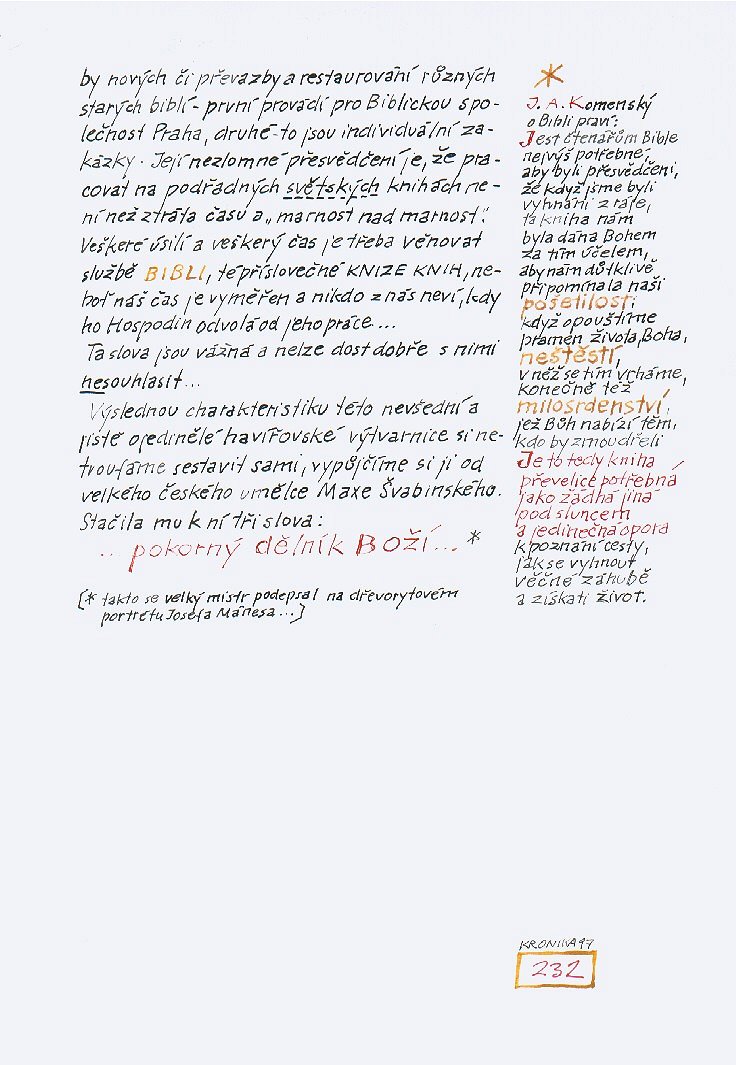 by nových či převazby a restaurování různých
starých biblí - první provádí pro Biblickou spo-
lečnost Praha, druhé - to jsou individuální za-
kázky. Její nezlomné přesvědčení je, že pra-
covat na podřadných světských knihách ne-
ní než ztráta času a „marnost nad marnost".
Veškeré úsilí a veškerý čas je třeba věnovat
službě BIBLI, té příslovečné KNIZE KNIH, ne-
boť náš čas je vyměřen a nikdo z nás neví, kdy
ho Hospodin odvolá od jeho práce...
Ta slova jsou vážná a nelze dost dobře s nimi
nesouhlasit...
Výslednou charakteristiku této nevšední a
jistě ojedinělé havířovské výtvarnice si ne-
troufáme sestavit sami, vypůjčíme si ji od
velkého českého umělce Maxe Švabinského.
Stačila mu k ní tři slova:
... pokorný dělník BOŽÍ... *
[* takto se velký mistr podepsal na dřevorytovém
portrétu Josefa Mánesa...]
*
J. A. Komenský
o Bibli praví:
Jest čtenářům Bible
nejvýš potřebné,
aby byli přesvědčeni,
že když jsme byli
vyhnáni z ráje,
ta kniha nám
byla dána Bohem
za tím účelem,
aby nám důtklivě
připomínala naši
pošetilost,
když opouštíme
pramen života, Boha,
neštěstí,
v něž se tím vrháme,
konečně též
milosrdenství,
jež Bůh nabízí těm,
kdo by zmoudřeli
Je to tedy kniha
převelice potřebná
jako žádná jiná
pod sluncem
a jedinečná opora
k poznání cesty,
jak se vyhnout
věčné záhubě
a získati život.
KRONIKA 97
232